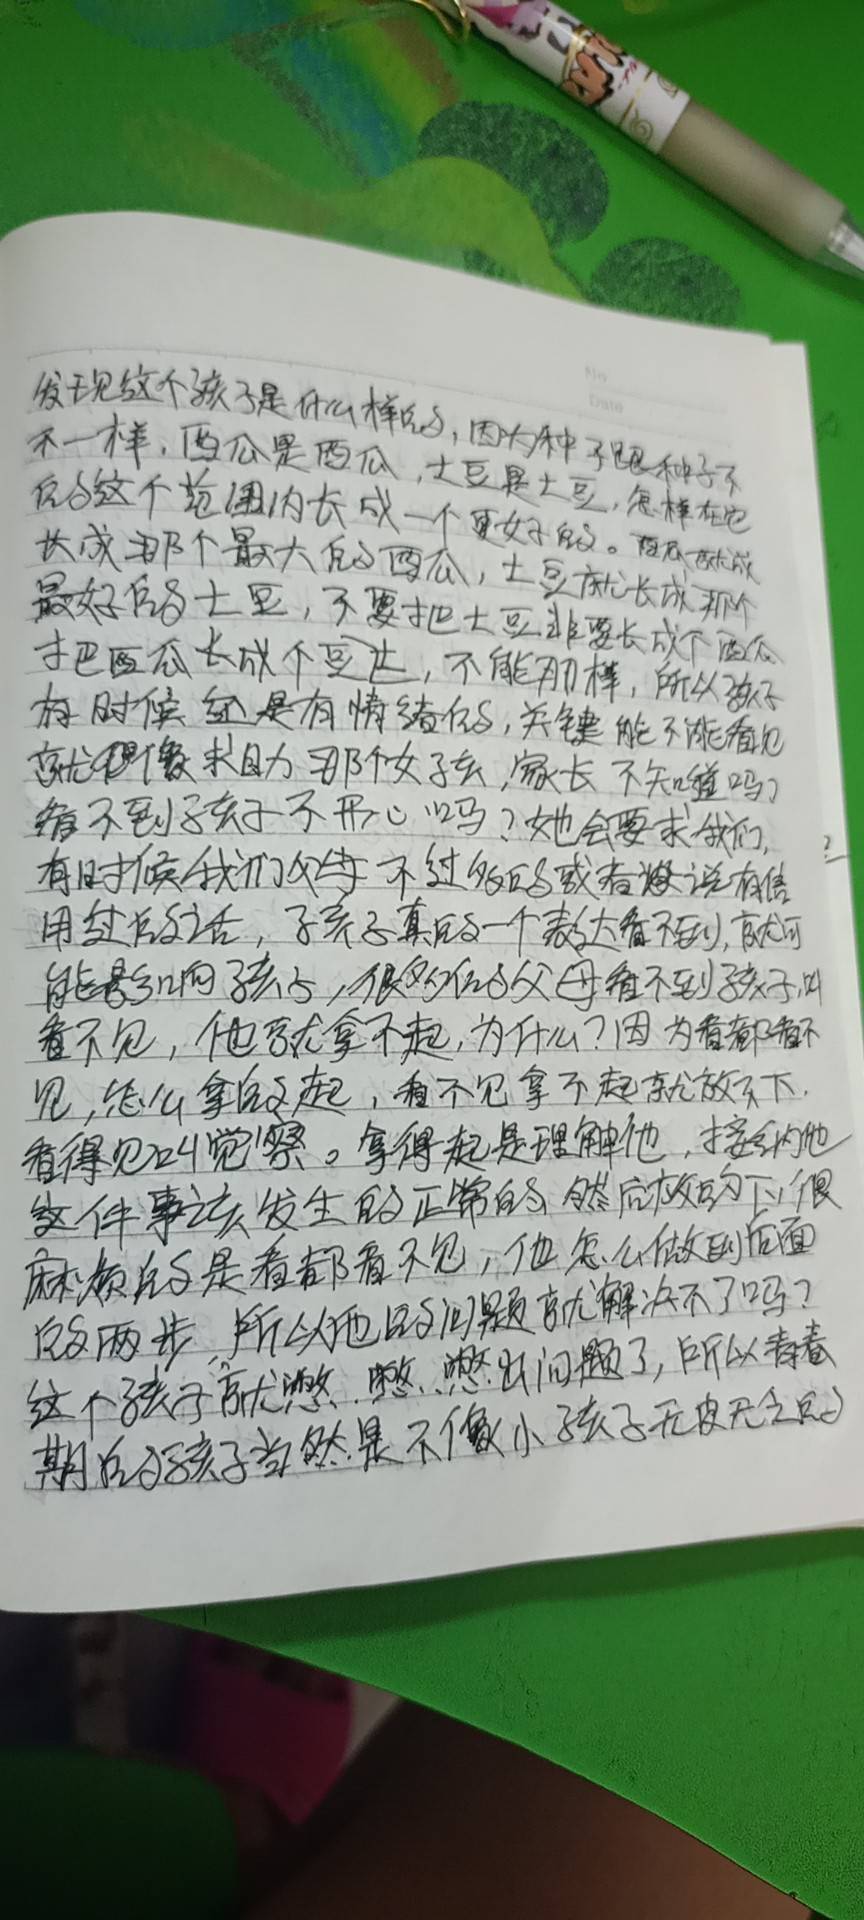 No
Date
发现这个孩子是什么样的，因为种子跟种子不
不一样，西瓜是西瓜，土豆是土豆，怎样在它
的这个范围内长成一个更好的。西瓜就成
长成那个最大的西瓜，土豆就长成那个
最好的土豆，不要把土豆非要长成个西瓜
把西瓜长成个豆，不能那样，所以孩子
有时候还是有情绪的，关键能不能看见
就像求助那个女孩，家长不知道吗？
看不到孩子不开心吗？她会要求我们，
有时候我们父母不过的或者说有信
用过的话，孩子真的一个表达看不到，就可
能影响孩子，很多的父母看不到孩子，叫
看不见，他就拿不起，为什么？因为看都看不
见，怎么拿的起，看不见拿不起就放不下.
看得见叫觉察。拿得起是理解他，接纳他
这件事该发生的正常的，然后放的下，很
麻烦的是看都看不见，他怎么做到后面
的两步，所以他的问题就解决不了吗？
这个孩子就憋.憋.憋出问题了，所以青春
期的孩子当然是不像小孩子无皮无的